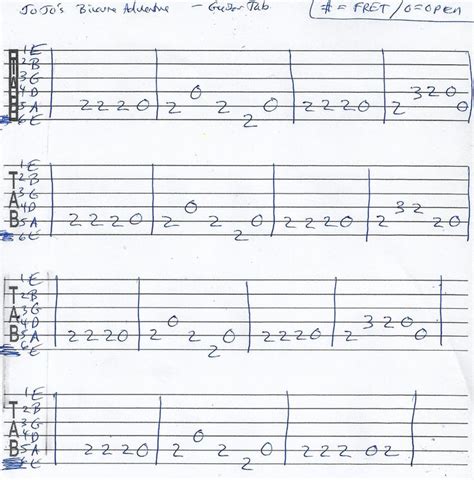 JoJo's Bizarre Adventure – Guitar Tab (# = FRET / 0=OPEN
TAB
1E
2B
3G
4D 0 3 2 0
5A 2 2 2 0 2 2 0 2 2 2 0 2 0
6E 2
TAB
1E
2B
3G
4D 0 3 2
5A 2 2 2 0 2 2 0 2 2 2 0 2 2 0
6E 2
TAB
1E
2B
3G
4D 0 3 2 0
5A 2 2 2 0 2 2 0 2 2 2 0 2 0
6E 2
TAB
1E
2B
3G
4D 0
5A 2 2 2 0 2 2 0 2 2 2 0 2
6E 2